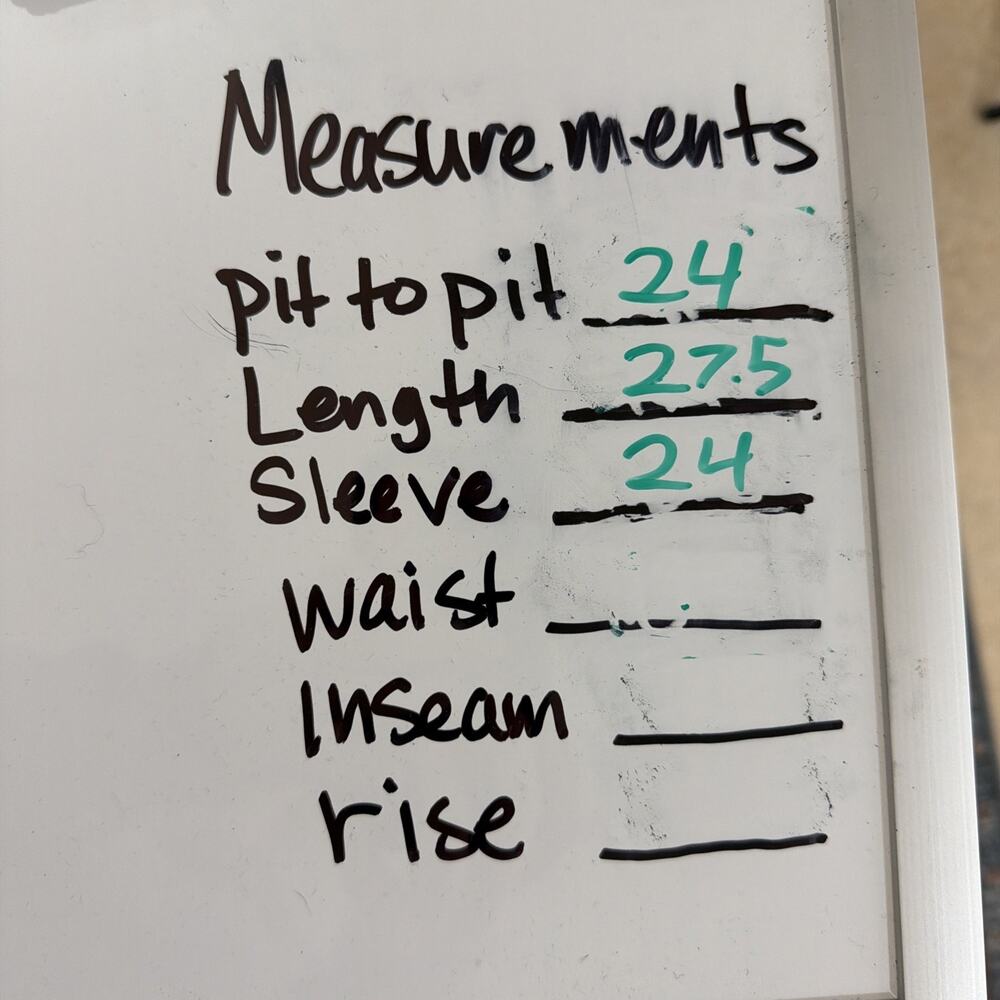 Measurements
pit to pit 24
Length 27.5
Sleeve 24
waist
Inseam
rise